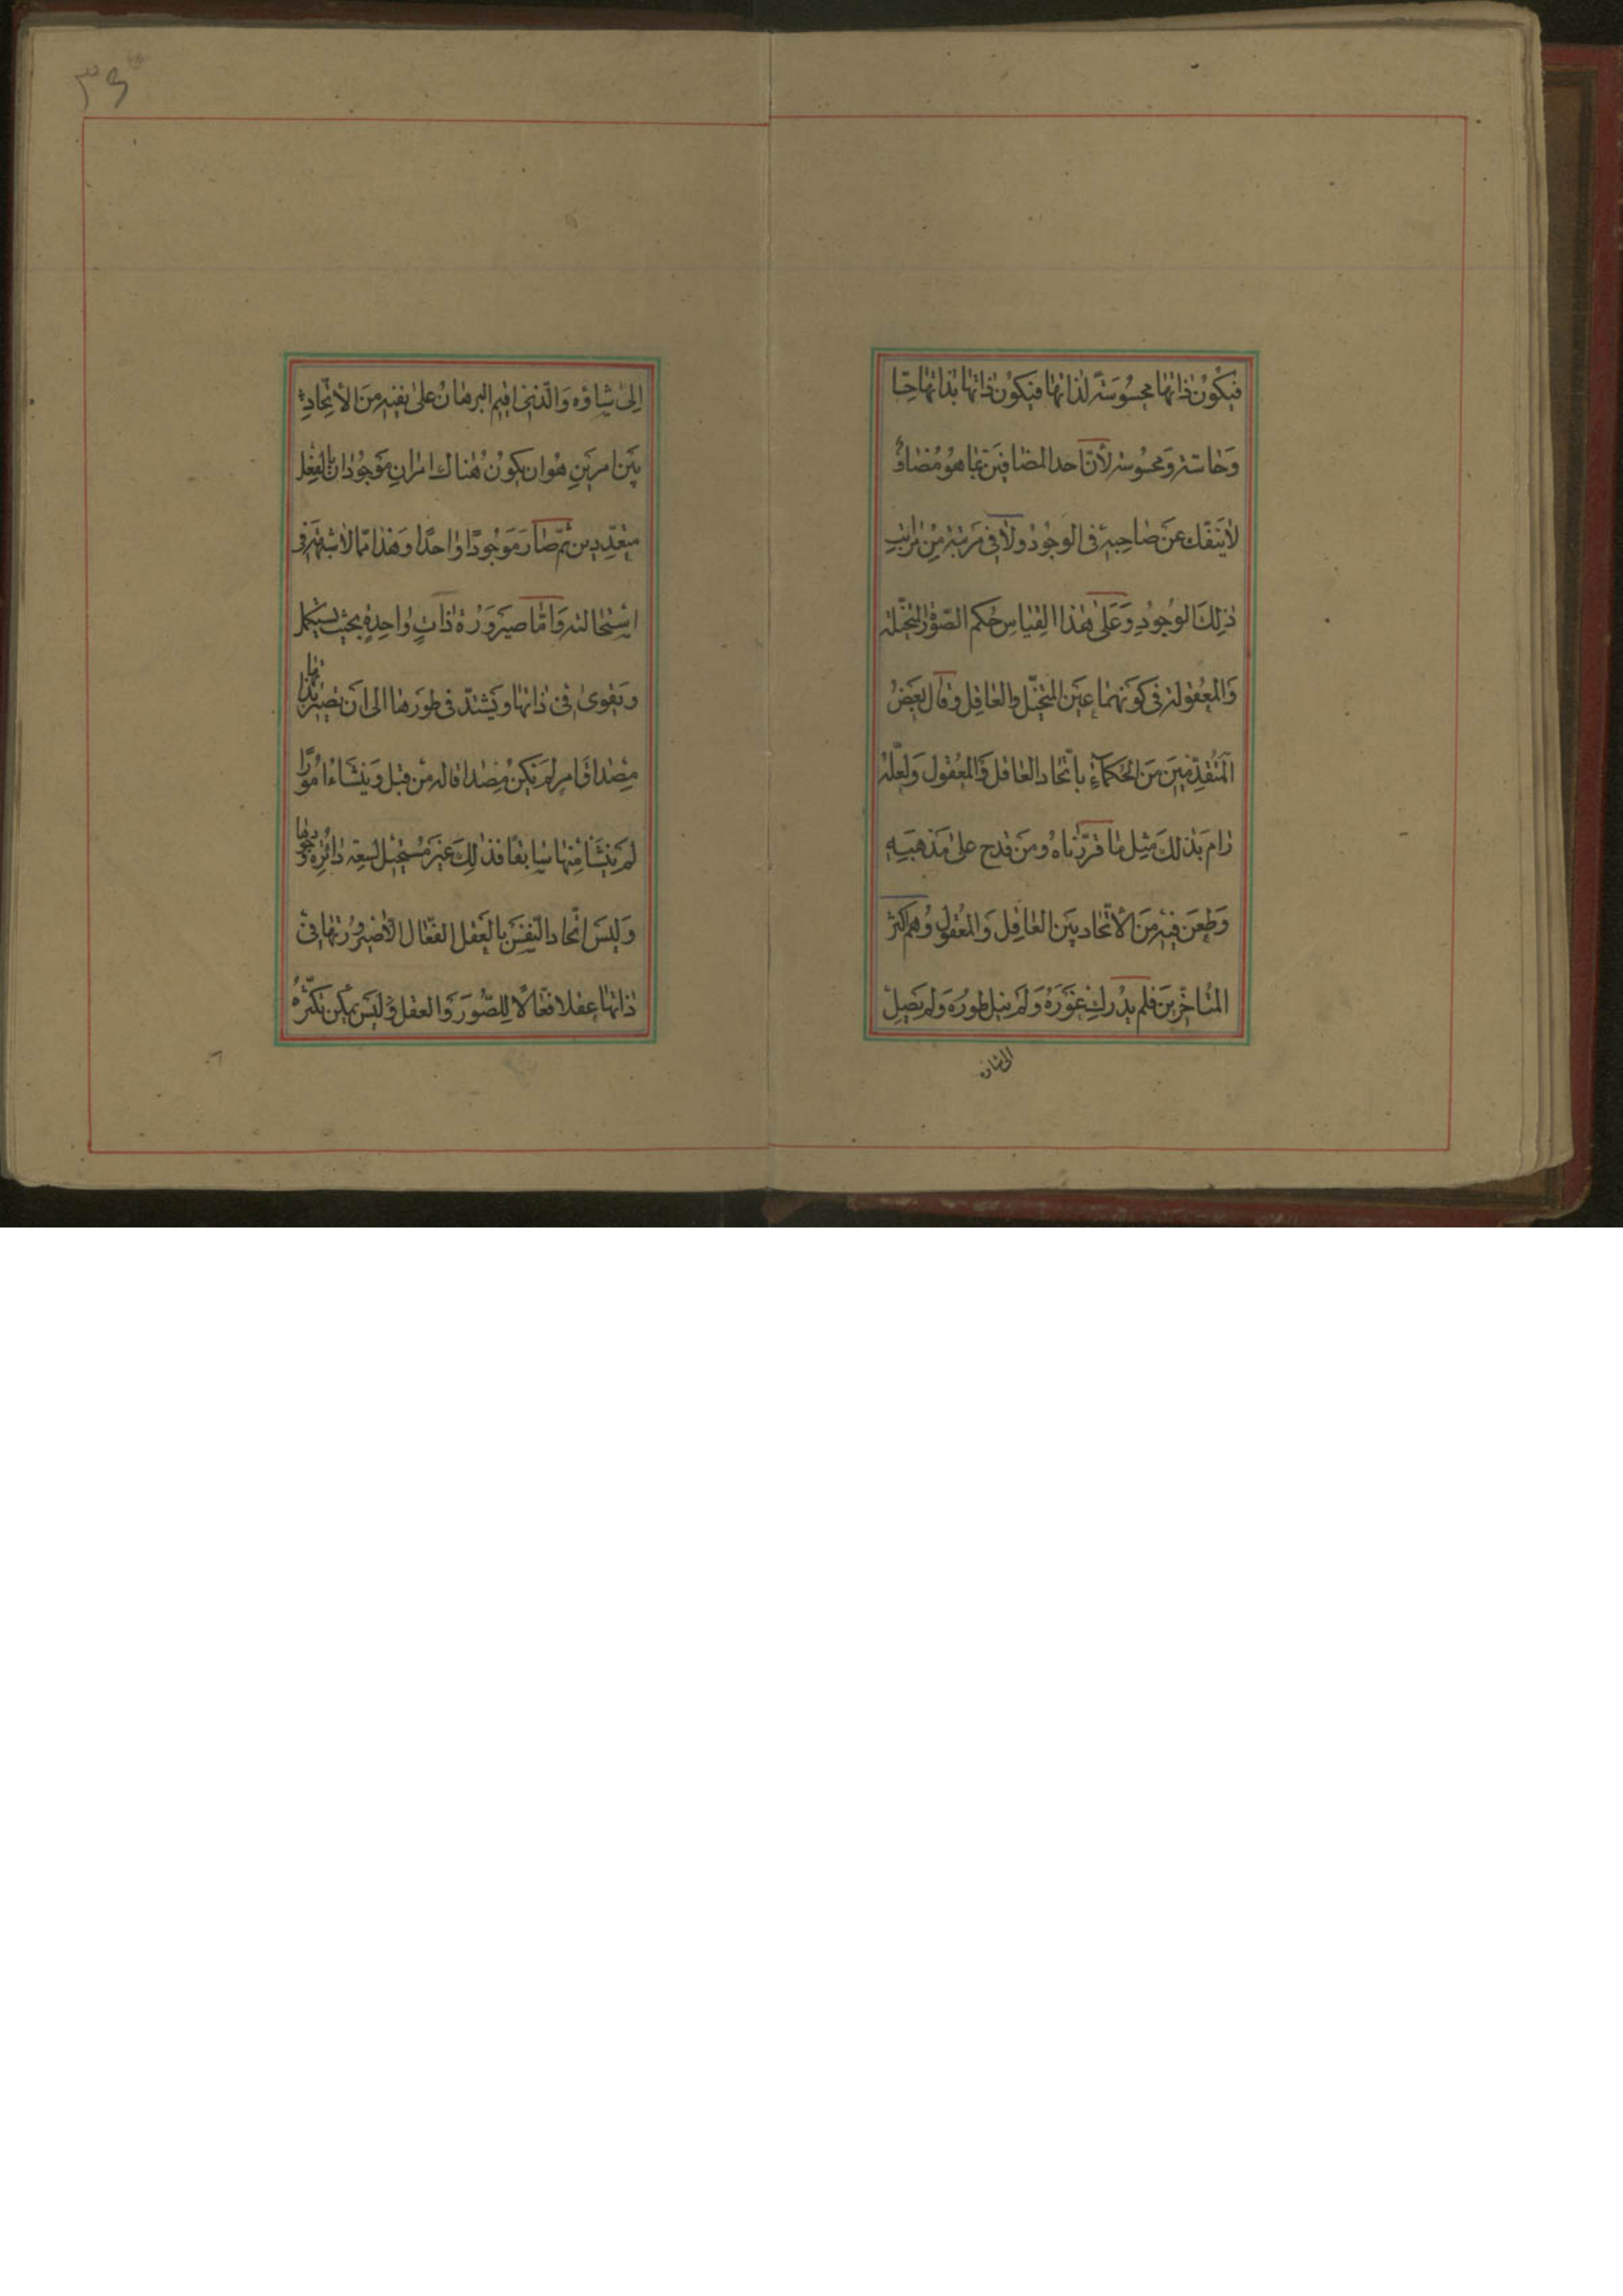 فَيَكُونُ ذاتها محسُوسَةً لذاتها فَيَكُونُ ذاتها بذاتها حِسّا
وَحاسّة وَمحسُوسة لأنّ احد المضافين بما هُوَ مُضافٌ
لا يَنفكّ عَن صاحِبِهِ فى الوجُودْ ولا فى مَرتبة مِن مَراتِب
ذلِكَ الوجُودِ وَعَلى هذا القِياسِ حُكم الصّورة المتخيّلة
وَالمعقولة فى كونهما عَين المتخيّل والعاقِل وقال بَعضُ
المتقدّمينَ مَن الحُكَماءِ باتّحاد العاقل وَالمعقول وَلعَلّهُ
رامَ بذلكَ مثِل ما قرّرناه ومَن قدح على مَذهَبِهِ
وَطعَن فيهِ مِنَ الاتّحاد بيَن العاقِل وَالمعُقولِ وُهم اكثر
المتُاخّرينَ فلم يدُركِ غَورَهُ وَلَم ينل طورُه وَلم يَصِل
الى شاؤه
٣٩
اِلىٰ شاؤه وَالّذى اقيم البرهانُ على نفيهِ مِنَ الاتّحادِ
بيَن امرينِ هوان يكونُ هُناك امرانِ مَوجُودان بالفِعل
متعدّدين ثمّ صارَ مَوجُودًا واحدًا وَهذا ممّا لا شبهَة فى
استحالته وَامّا صيَرورة ذاتٍ واحِدةٍ بحيث يستكمل
ويَقوى فى ذاتها وَيَشتدّ فى طَورَها الى ان تصير بذاتها
مِصداق امرٍ لم يَكن مُصداقا له من قبل وَينشاءُ امُورًا
لم يَنشَا مِنها سابقًا فذلِكَ غيَر مُستحيل لسعة دائرة وجودها
وَليسَ اتّحاد النّفسَ بالعَقل الفعّال الاّ صَيرورتها فى
ذاتها عقلا فعّالا لِلصّوَر وَالعقل وَ ليَس يمكِن تكثّرهُ